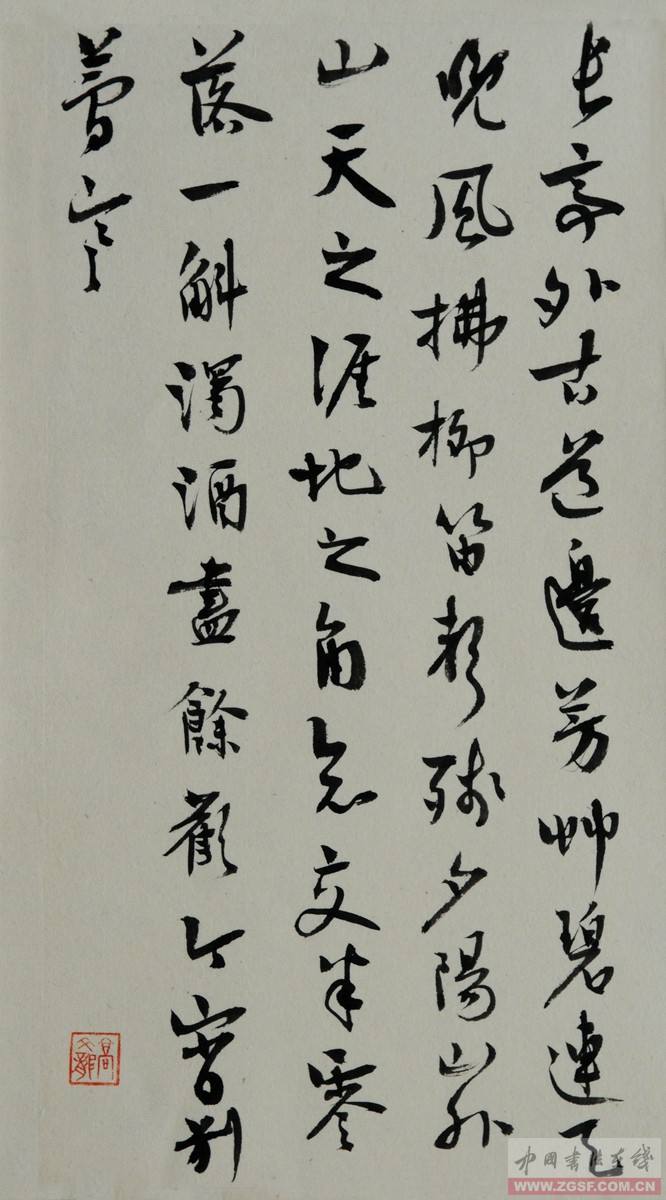 長亭外古道邊芳艸碧連天
晚風拂柳笛聲殘夕陽山外
山天之涯地之角知交半零
落一斛濁酒盡餘歡今宵別
夢寒
高文龍
中国書法在线
WWW.ZGSF.COM.CN